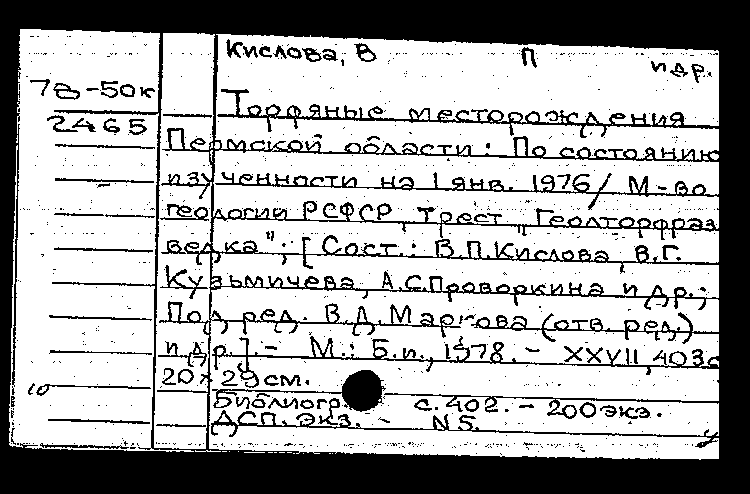 Кислова, В П и др.
78-50к
2465
Торфяные месторождения
Пермской области: По состоянию
изученности на 1 янв. 1976/ М-во
геологии РСФСР, Трест „Геолторфраз
ведка"; [Сост.: В.П.Кислова, В.Г.
Кузьмичева, А.С.Проворкина и др.;
Под ред. В.Д.Маркова (отв. ред.)
и др.]. - М.: Б.и., 1978. - XXVII, 403с
20×29см.
10
Библиогр с. 402. - 200экз.
ДСП. Экз. - N5.